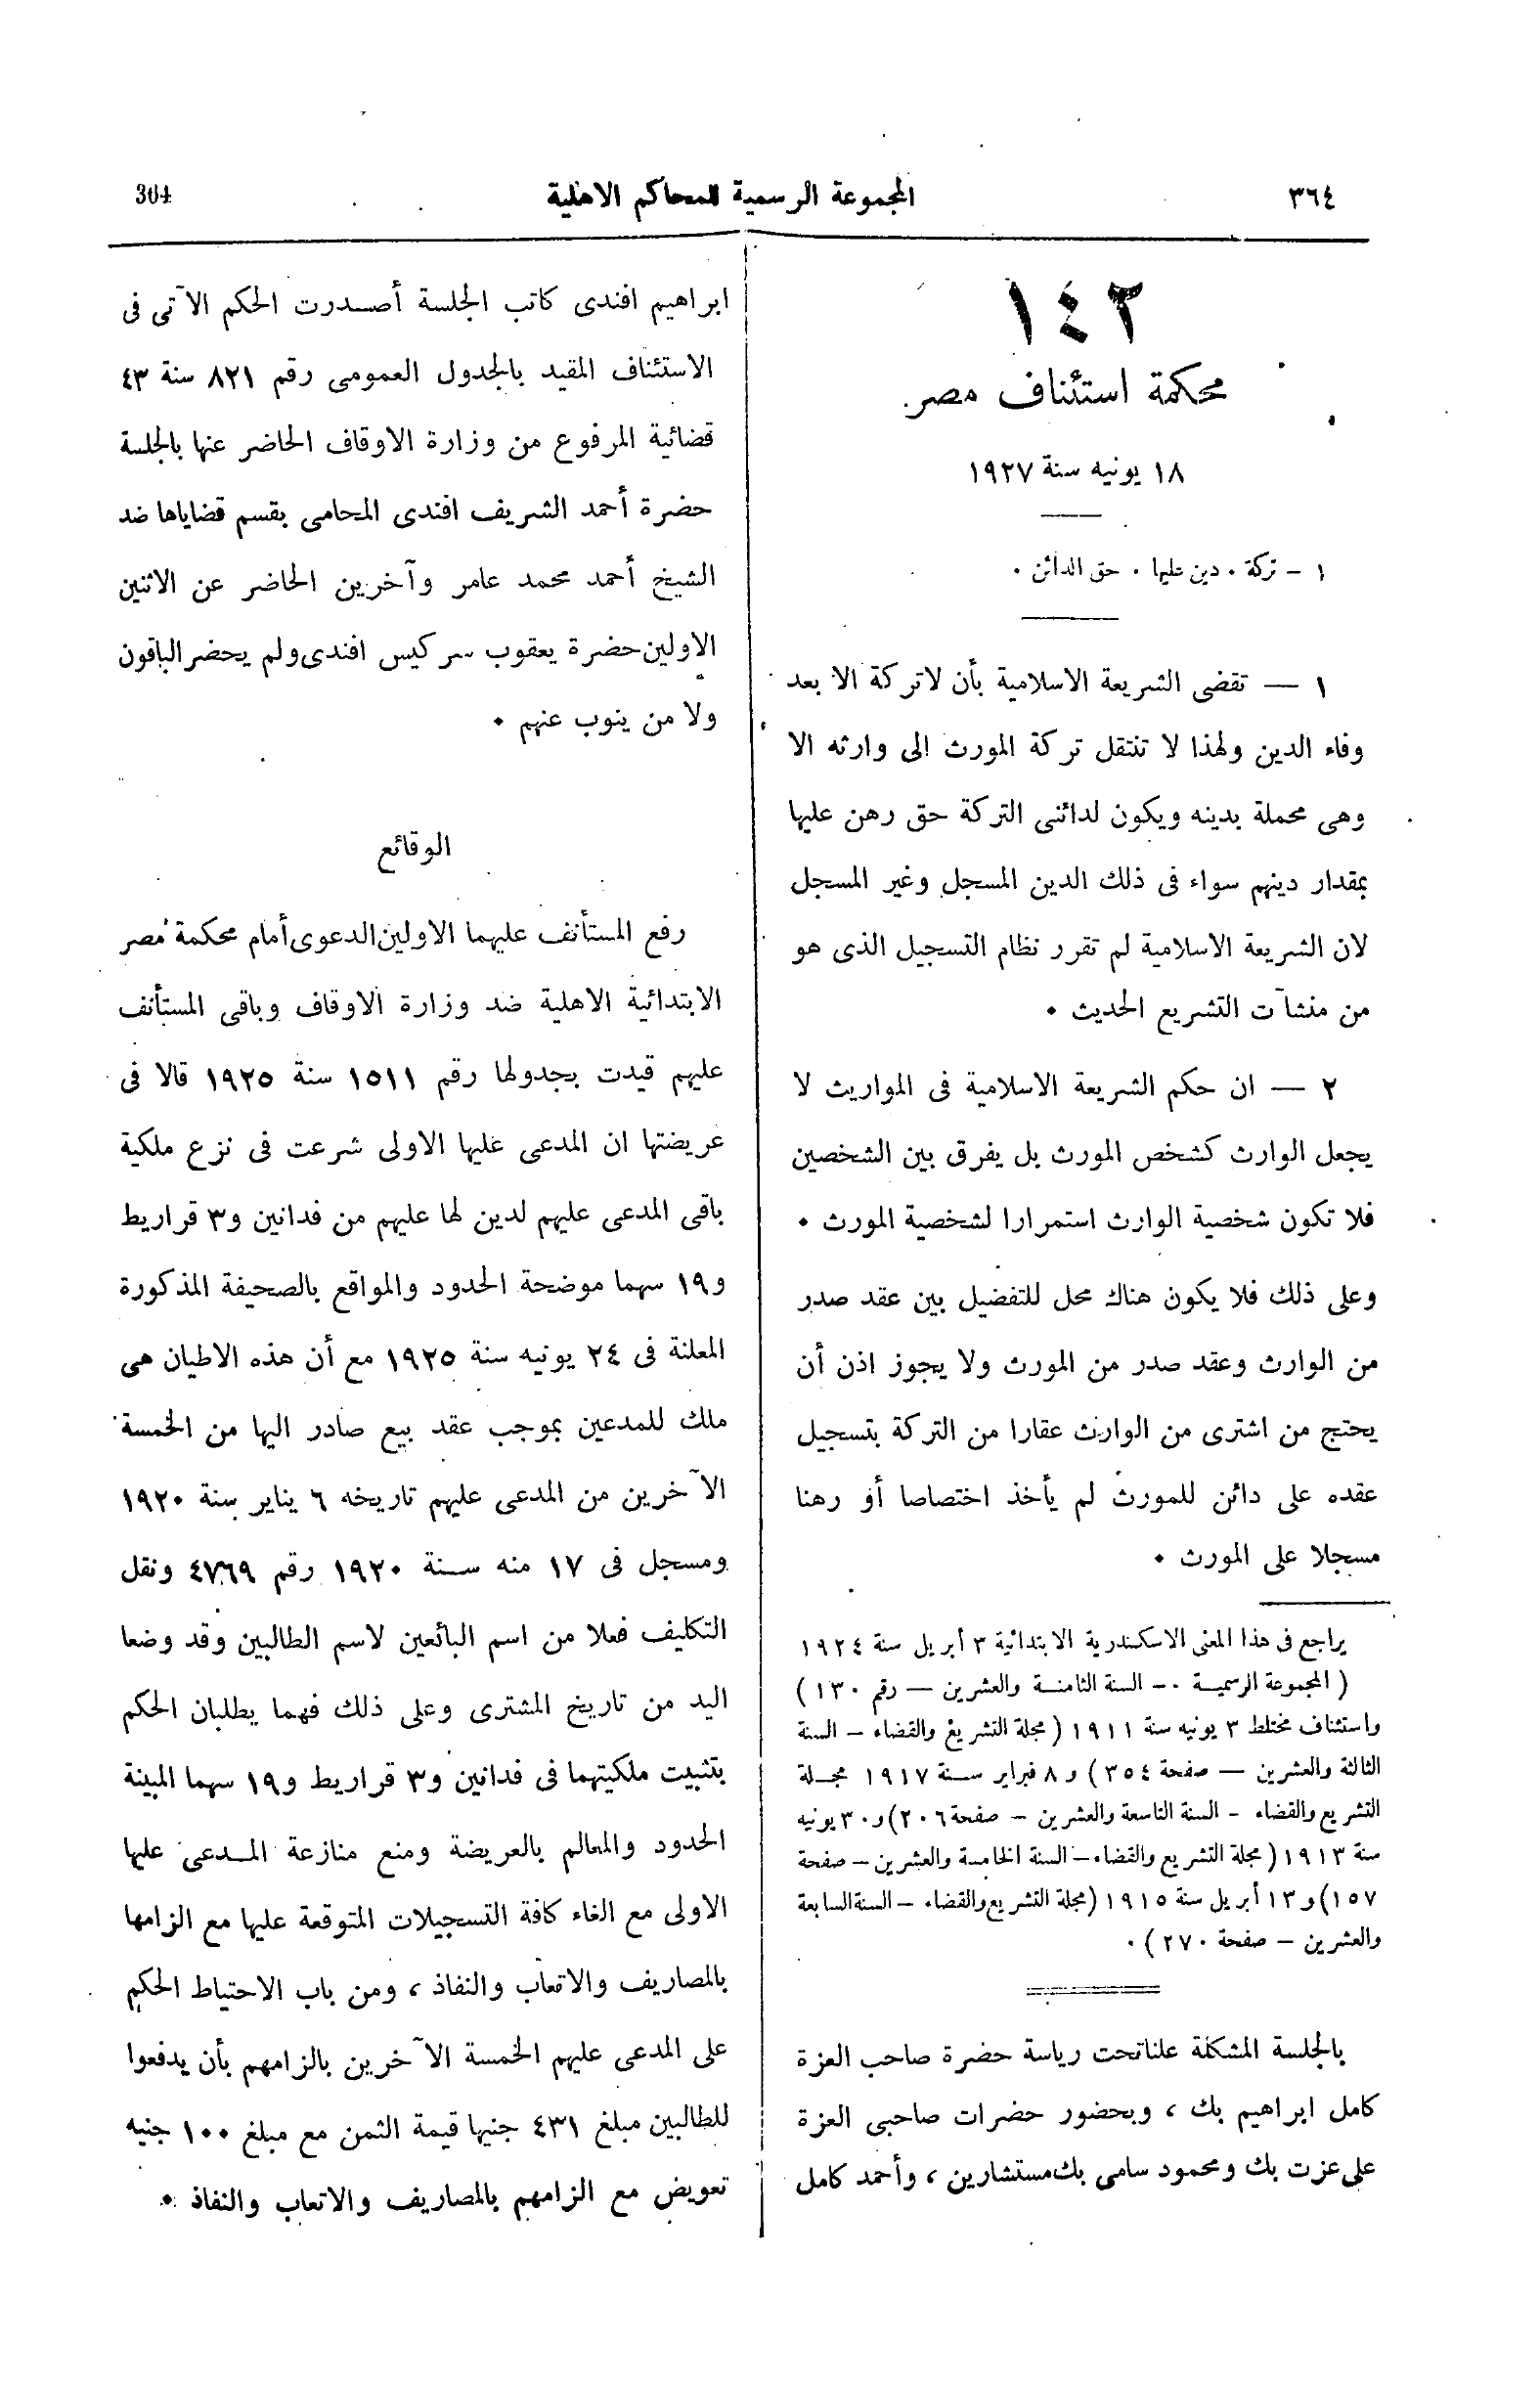 ٣٦٤
المجموعة الرسمية للمحاكم الاهلية
364
١٤٢
محكمة استئناف مصر
١٨ يونيه سنة ١٩٢٧
١ – تركة . دين عليها . حق الدائن .
١ — تقضى الشريعة الاسلامية بأن لا تركة الا بعد
وفاء الدين ولهذا لا تنتقل تركة المورث الى وارثه الا
وهى محملة بدينه ويكون لدائنى التركة حق رهن عليها
بمقدار دينهم سواء فى ذلك الدين المسجل وغير المسجل
لان الشريعة الاسلامية لم تقرر نظام التسجيل الذى هو
من منشآت التشريع الحديث .
٢ — ان حكم الشريعة الاسلامية فى المواريث لا
يجعل الوارث كشخص المورث بل يفرق بين الشخصين
فلا تكون شخصية الوارث استمرارا لشخصية المورث .
وعلى ذلك فلا يكون هناك محل للتفضيل بين عقد صدر
من الوارث وعقد صدر من المورث ولا يجوز اذن أن
يحتج من اشترى من الوارث عقارا من التركة بتسجيل
عقده على دائن للمورث لم يأخذ اختصاصا أو رهنا
مسجلا على المورث .
يراجع فى هذا المعنى الاسكندرية الابتدائية ٣ أبريل سنة ١٩٢٤
( المجموعة الرسمية – السنة الثامنة والعشرين — رقم ١٣٠ )
واستئناف مختلط ٣ يونيه سنة ١٩١١ ( مجلة التشريع والقضاء – السنة
الثالثة والعشرين — صفحة ٣٥٤ ) و ٨ فبراير سنة ١٩١٧ مجلة
التشريع والقضاء – السنة التاسعة والعشرين – صفحة ٢٠٦) و ٣٠ يونيه
سنة ١٩١٣ ( مجلة التشريع والقضاء – السنة الخامسة والعشرين – صفحة
١٥٧) و ١٣ أبريل سنة ١٩١٥ (مجلة التشريع والقضاء – السنة السابعة
والعشرين – صفحة ٢٧٠ ) .
بالجلسة المشكلة علنا تحت رياسة حضرة صاحب العزة
كامل ابراهيم بك ، وبحضور حضرات صاحبى العزة
على عزت بك ومحمود سامى بك مستشارين ، وأحمد كامل
ابراهيم افندى كاتب الجلسة أصدرت الحكم الآتى فى
الاستئناف المقيد بالجدول العمومى رقم ٨٢١ سنة ٤٣
قضائية المرفوع من وزارة الاوقاف الحاضر عنها بالجلسة
حضرة أحمد الشريف افندى المحامى بقسم قضاياها ضد
الشيخ أحمد محمد عامر وآخرين الحاضر عن الاثنين
الاولين حضرة يعقوب سركيس افندى ولم يحضر الباقون
ولا من ينوب عنهم .
الوقائع
رفع المستأنف عليهما الاولين الدعوى أمام محكمة مصر
الابتدائية الاهلية ضد وزارة الاوقاف وباقى المستأنف
عليهم قيدت بجدولها رقم ١٥١١ سنة ١٩٢٥ قالا فى
عريضتها ان المدعى عليها الاولى شرعت فى نزع ملكية
باقى المدعى عليهم لدين لها عليهم من فدانين و٣ قراريط
و١٩ سهما موضحة الحدود والمواقع بالصحيفة المذكورة
المعلنة فى ٢٤ يونيه سنة ١٩٢٥ مع أن هذه الاطيان هى
ملك للمدعين بموجب عقد بيع صادر اليها من الخمسة
الآخرين من المدعى عليهم تاريخه ٦ يناير سنة ١٩٢٠
ومسجل فى ١٧ منه سنة ١٩٢٠ رقم ٤٧٦٩ ونقل
التكليف فعلا من اسم البائعين لاسم الطالبين وقد وضعا
اليد من تاريخ المشترى وعلى ذلك فهما يطلبان الحكم
بتثبيت ملكيتهما فى فدانين و٣ قراريط و١٩ سهما المبينة
الحدود والمعالم بالعريضة ومنع منازعة المدعى عليها
الاولى مع الغاء كافة التسجيلات المتوقعة عليها مع الزامها
بالمصاريف والاتعاب والنفاذ ، ومن باب الاحتياط الحكم
على المدعى عليهم الخمسة الآخرين بالزامهم بأن يدفعوا
للطالبين مبلغ ٤٣١ جنيها قيمة الثمن مع مبلغ ١٠٠ جنيه
تعويض مع الزامهم بالمصاريف والاتعاب والنفاذ .